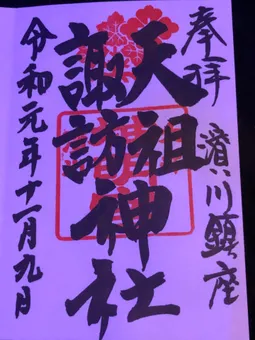 奉拝 濱川鎮座
天祖
諏訪神社
令和元年十一月九日